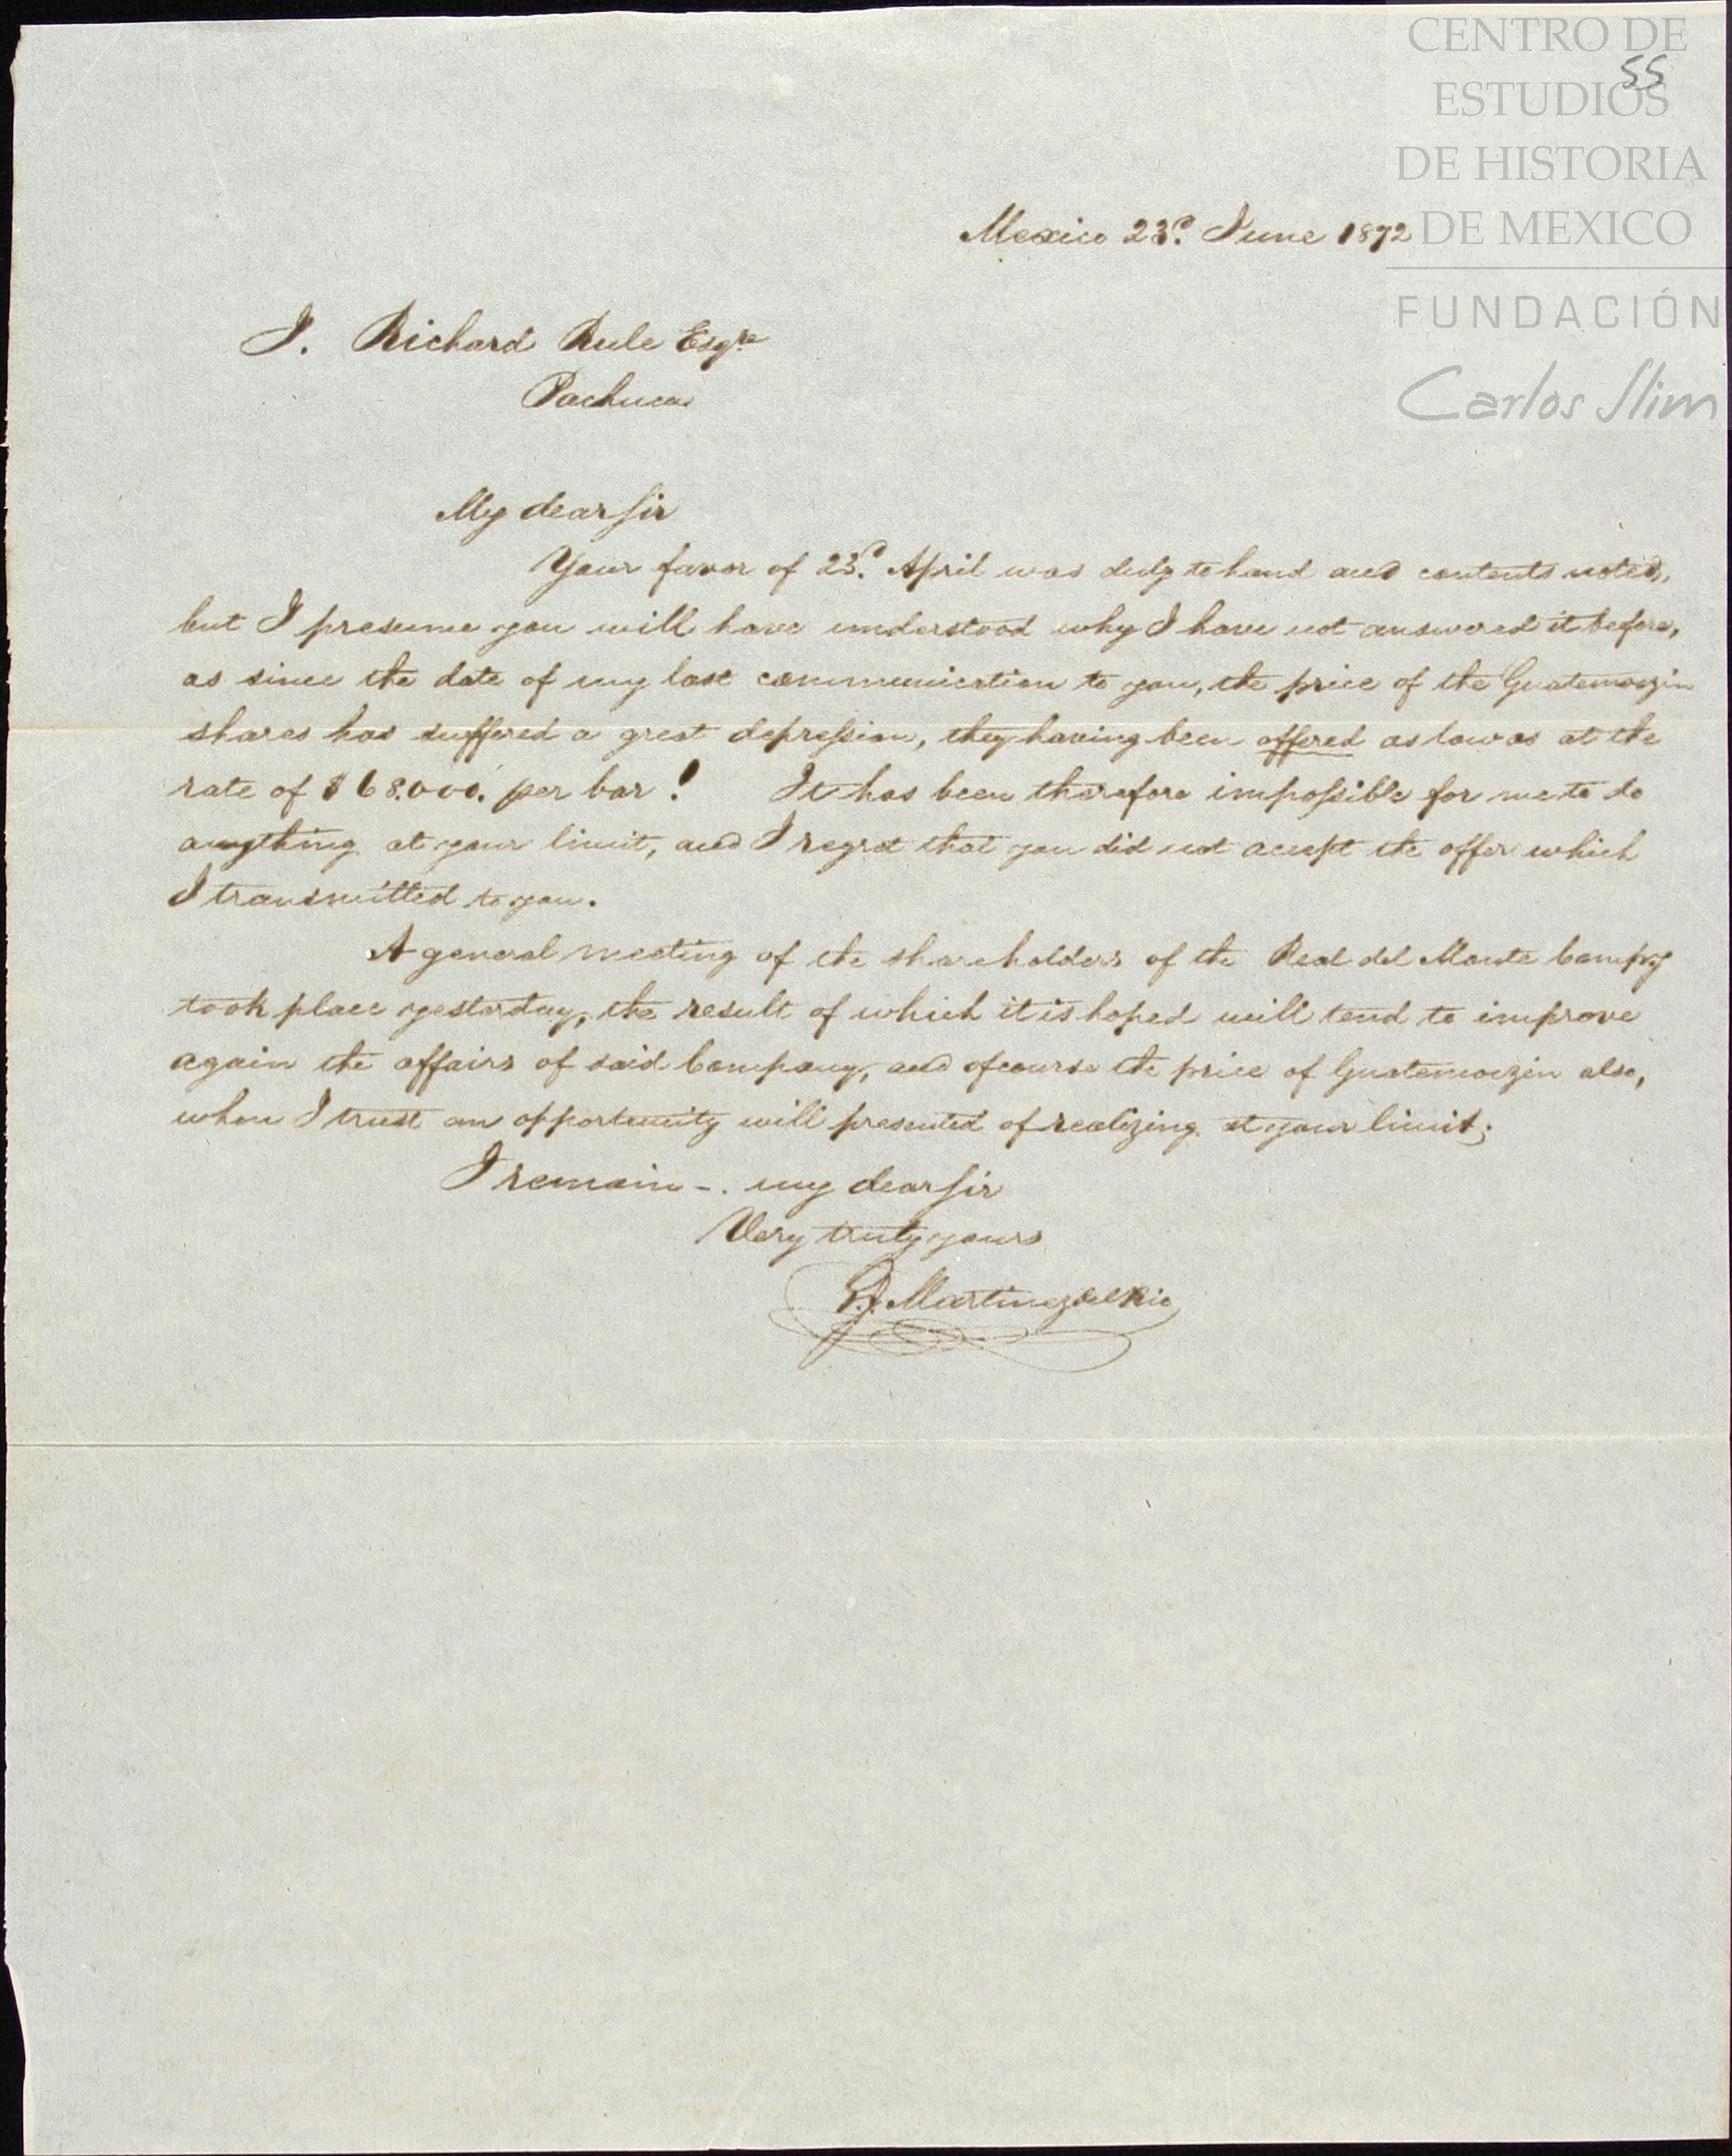 CENTRO DE
ESTUDIOS
DE HISTORIA
DE MEXICO
FUNDACIÓN
Carlos Slim
55
Mexico 23d. June 1872
J. Richard Rule Esqre
Pachuca
My dear Sir
Your favor of 23d. April was duly to hand and contents noted,
but I presume you will have understood why I have not answered it before,
as since the date of my last communication to you, the price of the Guatemozin
shares has suffered a great depression, they having been offered as low as at the
rate of $68.000. per bar! It has been therefore impossible for me to do
anything at your limit, and I regret that you did not accept the offer which
I transmitted to you.
A general meeting of the shareholders of the Real del Monte Compy
took place yesterday, the result of which it is hoped will tend to improve
again the affairs of said Company, and of course the price of Guatemozin also,
when I trust an opportunity will presented of realizing at your limit;
I remain -. my dear Sir
Very truly yours
P. J. Martinez del Rio